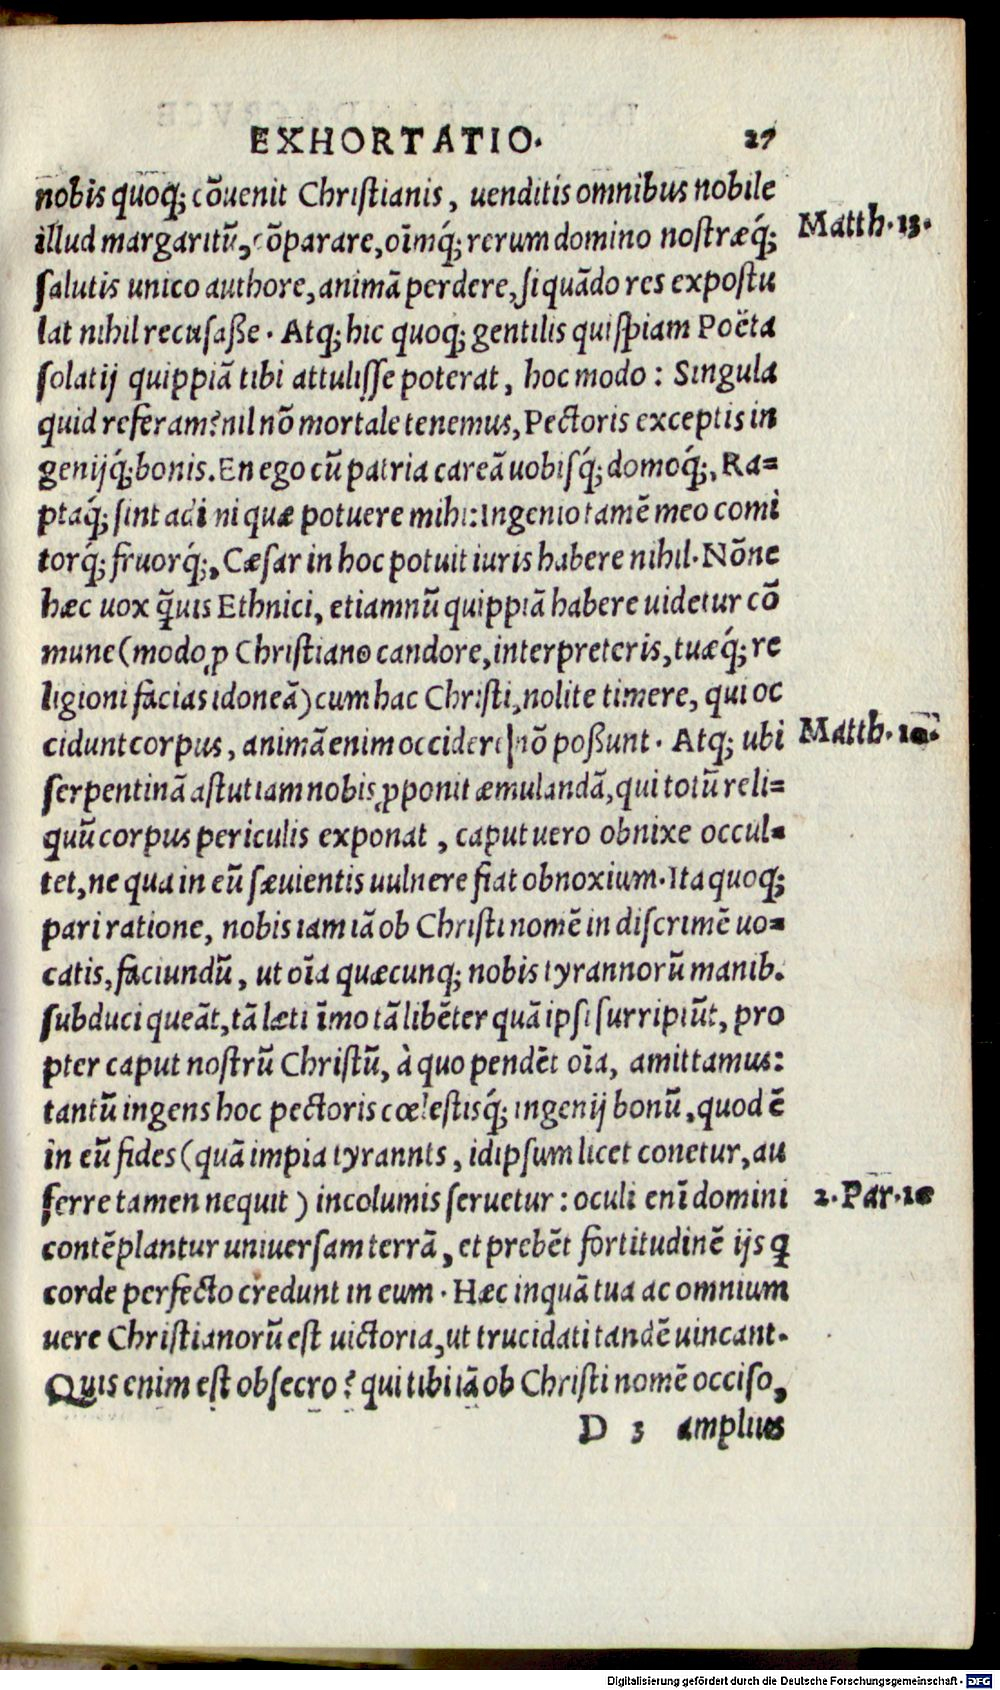 EXHORTATIO. 27
nobis quoq; cõuenit Christianis, uenditis omnibus nobile
illud margaritũ, cõparare, oĩmq́; rerum domino nostræq́; Matth. 13.
salutis unico authore, animã perdere, si quãdo res expostu
lat nihil recusaße. Atq; hic quoq; gentilis quispiam Poëta
solatij quippiã tibi attulisse poterat, hoc modo: Singula
quid referam? nil nõ mortale tenemus, Pectoris exceptis in
genijq́; bonis. En ego cũ patria careã uobisq́; domoq́;, Ra=
ptaq́; sint adimi quæ potuere mihi: Ingenio tamẽ meo comi
torq́; fruorq́;, Cæsar in hoc potuit iuris habere nihil. Nõne
hæc uox q̃uis Ethnici, etiamnũ quippiã habere uidetur cõ
mune (modo ꝓ Christiano candore, interpreteris, tuæq́; re
ligioni facias idoneã) cum hac Christi, nolite timere, qui oc
cidunt corpus, animã enim occidere nõ poßunt. Atq; ubi Matth. 10.
serpentinã astutiam nobis ꝓponit æmulandã, qui totũ reli=
quũ corpus periculis exponat, caput uero obnixe occul=
tet, ne qua in eũ sæuientis uulnere fiat obnoxium. Ita quoq;
pari ratione, nobis iam iã ob Christi nomẽ in discrimẽ uo=
catis, faciundũ, ut oĩa quæcunq; nobis tyrannorũ manib.
subduci queãt, tã læti ĩmo tã libẽter quã ipsi surripiũt, pro
pter caput nostrũ Christũ, à quo pendẽt oĩa, amittamus:
tantũ ingens hoc pectoris cœlestisq́; ingenij bonũ, quod ẽ
in eũ fides (quã impia tyrannis, idipsum licet conetur, au
ferre tamen nequit) incolumis seruetur: oculi enĩ domini 2. Par. 16
contẽplantur uniuersam terrã, et prebẽt fortitudinẽ ijs q̃
corde perfecto credunt in eum. Hæc inquã tua ac omnium
uere Christianorũ est uictoria, ut trucidati tandẽ uincant.
Quis enim est obsecro? qui tibi iã ob Christi nomẽ occiso,
D 3 amplius
Digitalisierung gefördert durch die Deutsche Forschungsgemeinschaft - DFG